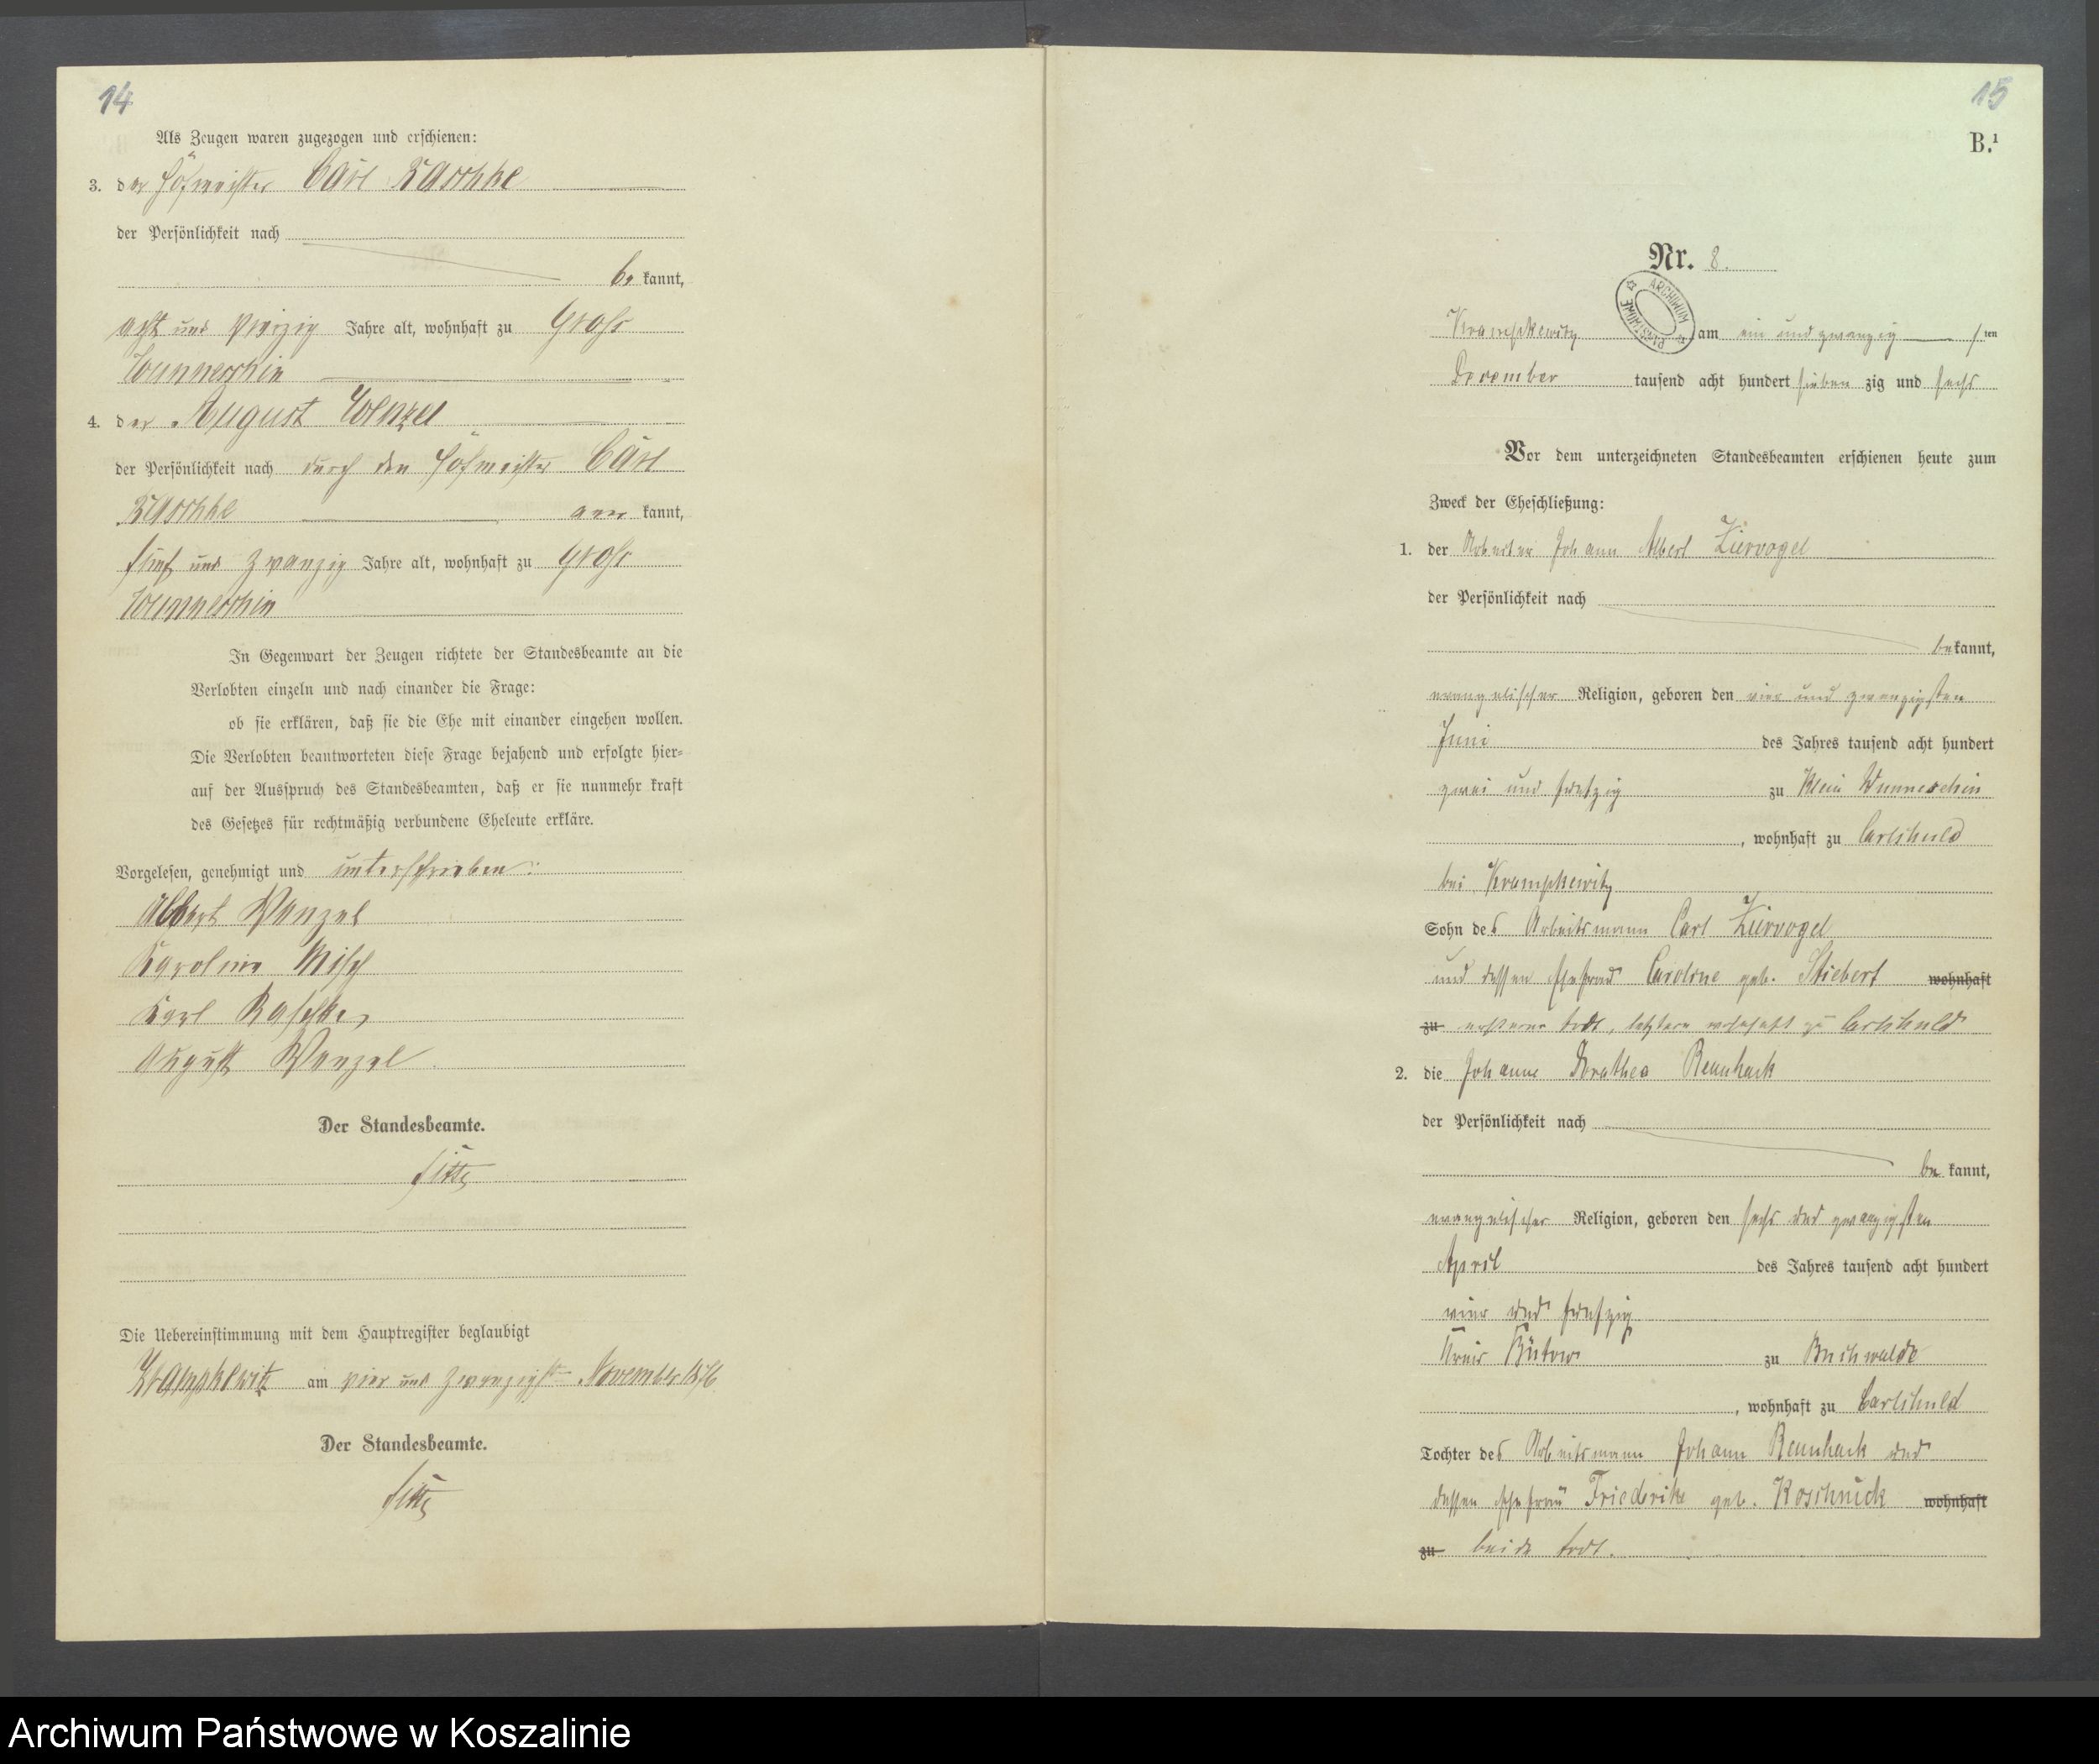 14
Als Zeugen waren zugezogen und erschienen:
3. der Hofmeister Carl Raschke
der Persönlichkeit nach
be kannt,
acht und vierzig Jahre alt, wohnhaft zu Groß
Wunneschin
4. der August Wenzel
der Persönlichkeit nach durch den Hofmeister Carl
Raschke aner kannt,
fünf und zwanzig Jahre alt, wohnhaft zu Groß
Wunneschin
In Gegenwart der Zeugen richtete der Standesbeamte an die
Verlobten einzeln und nach einander die Frage:
ob sie erklären, daß sie die Ehe mit einander eingehen wollen.
Die Verlobten beantworteten diese Frage bejahend und erfolgte hier-
auf der Ausspruch des Standesbeamten, daß er sie nunmehr kraft
des Gesetzes für rechtmäßig verbundene Eheleute erkläre.
Vorgelesen, genehmigt und unterschrieben:
Albert Wenzel
Karoline Misch
Karl Raschke
August Wenzel
Der Standesbeamte.
Die Uebereinstimmung mit dem Hauptregister beglaubigt
Krampkewitz am vier und zwanzigst November 1876
Der Standesbeamte.
15
B.¹
Nr. 8.
ARCHIWUM PAŃSTWOWE
Krampkewitz am ein und zwanzig sten
December tausend acht hundert sieben zig und sechs
Vor dem unterzeichneten Standesbeamten erschienen heute zum
Zweck der Eheschließung:
1. der Arbeiter Johann Albert Ziervogel
der Persönlichkeit nach
bekannt,
evangelischer Religion, geboren den vier und zwanzigsten
Juni des Jahres tausend acht hundert
zwei und funfzig zu Klein Wunneschin
, wohnhaft zu Carlshuld
bei Krampkewitz
Sohn des Arbeitsmann Carl Ziervogel
und dessen Ehefrau Caroline geb. Stiebert wohnhaft
zu ersterer todt, letztere wohnhaft zu Carlshuld
2. die Johanne Dorathea Rennhack
der Persönlichkeit nach
be kannt,
evangelischer Religion, geboren den sechs und zwanzigsten
April des Jahres tausend acht hundert
vier und funfzig
Kreis Bütow zu Buchwalde
, wohnhaft zu Carlshuld
Tochter des Arbeitsmann Johann Rennhack und
dessen Ehefrau Friederike geb. Koschnick wohnhaft
zu beide todt.
Archiwum Państwowe w Koszalinie